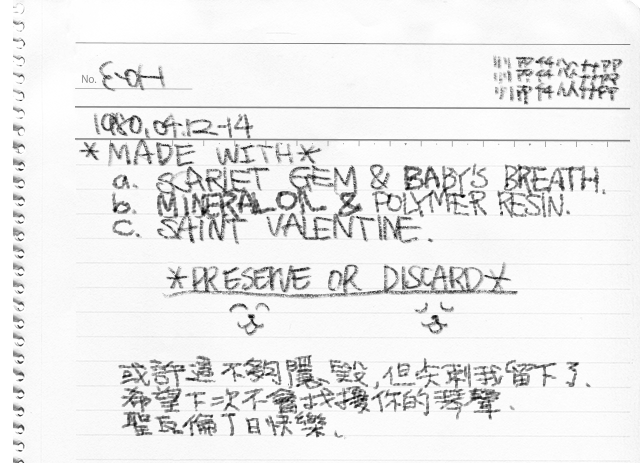 No. E-04
1980.04.12-14
*MADE WITH*
a. SCARLET GEM & BABY'S BREATH.
b. MINERAL OIL & POLYMER RESIN.
c. SAINT VALENTINE.
*PRESERVE OR DISCARD*
或許還不夠隱、毀,但尖刺我留下了、
希望下次不會找擾你的琴聲、
聖瓦倫丁日快樂、